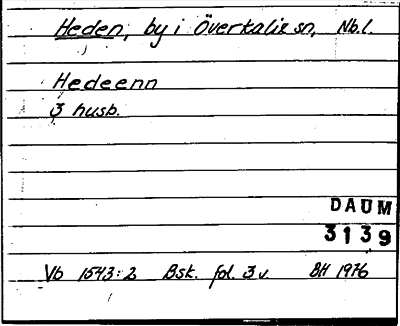 Heden, by i Överkalix sn, Nb.l.
Hedeenn
3 husb.
DAUM
3139
Vb 1543:2 Bsk. fol. 3 v. BH 1976